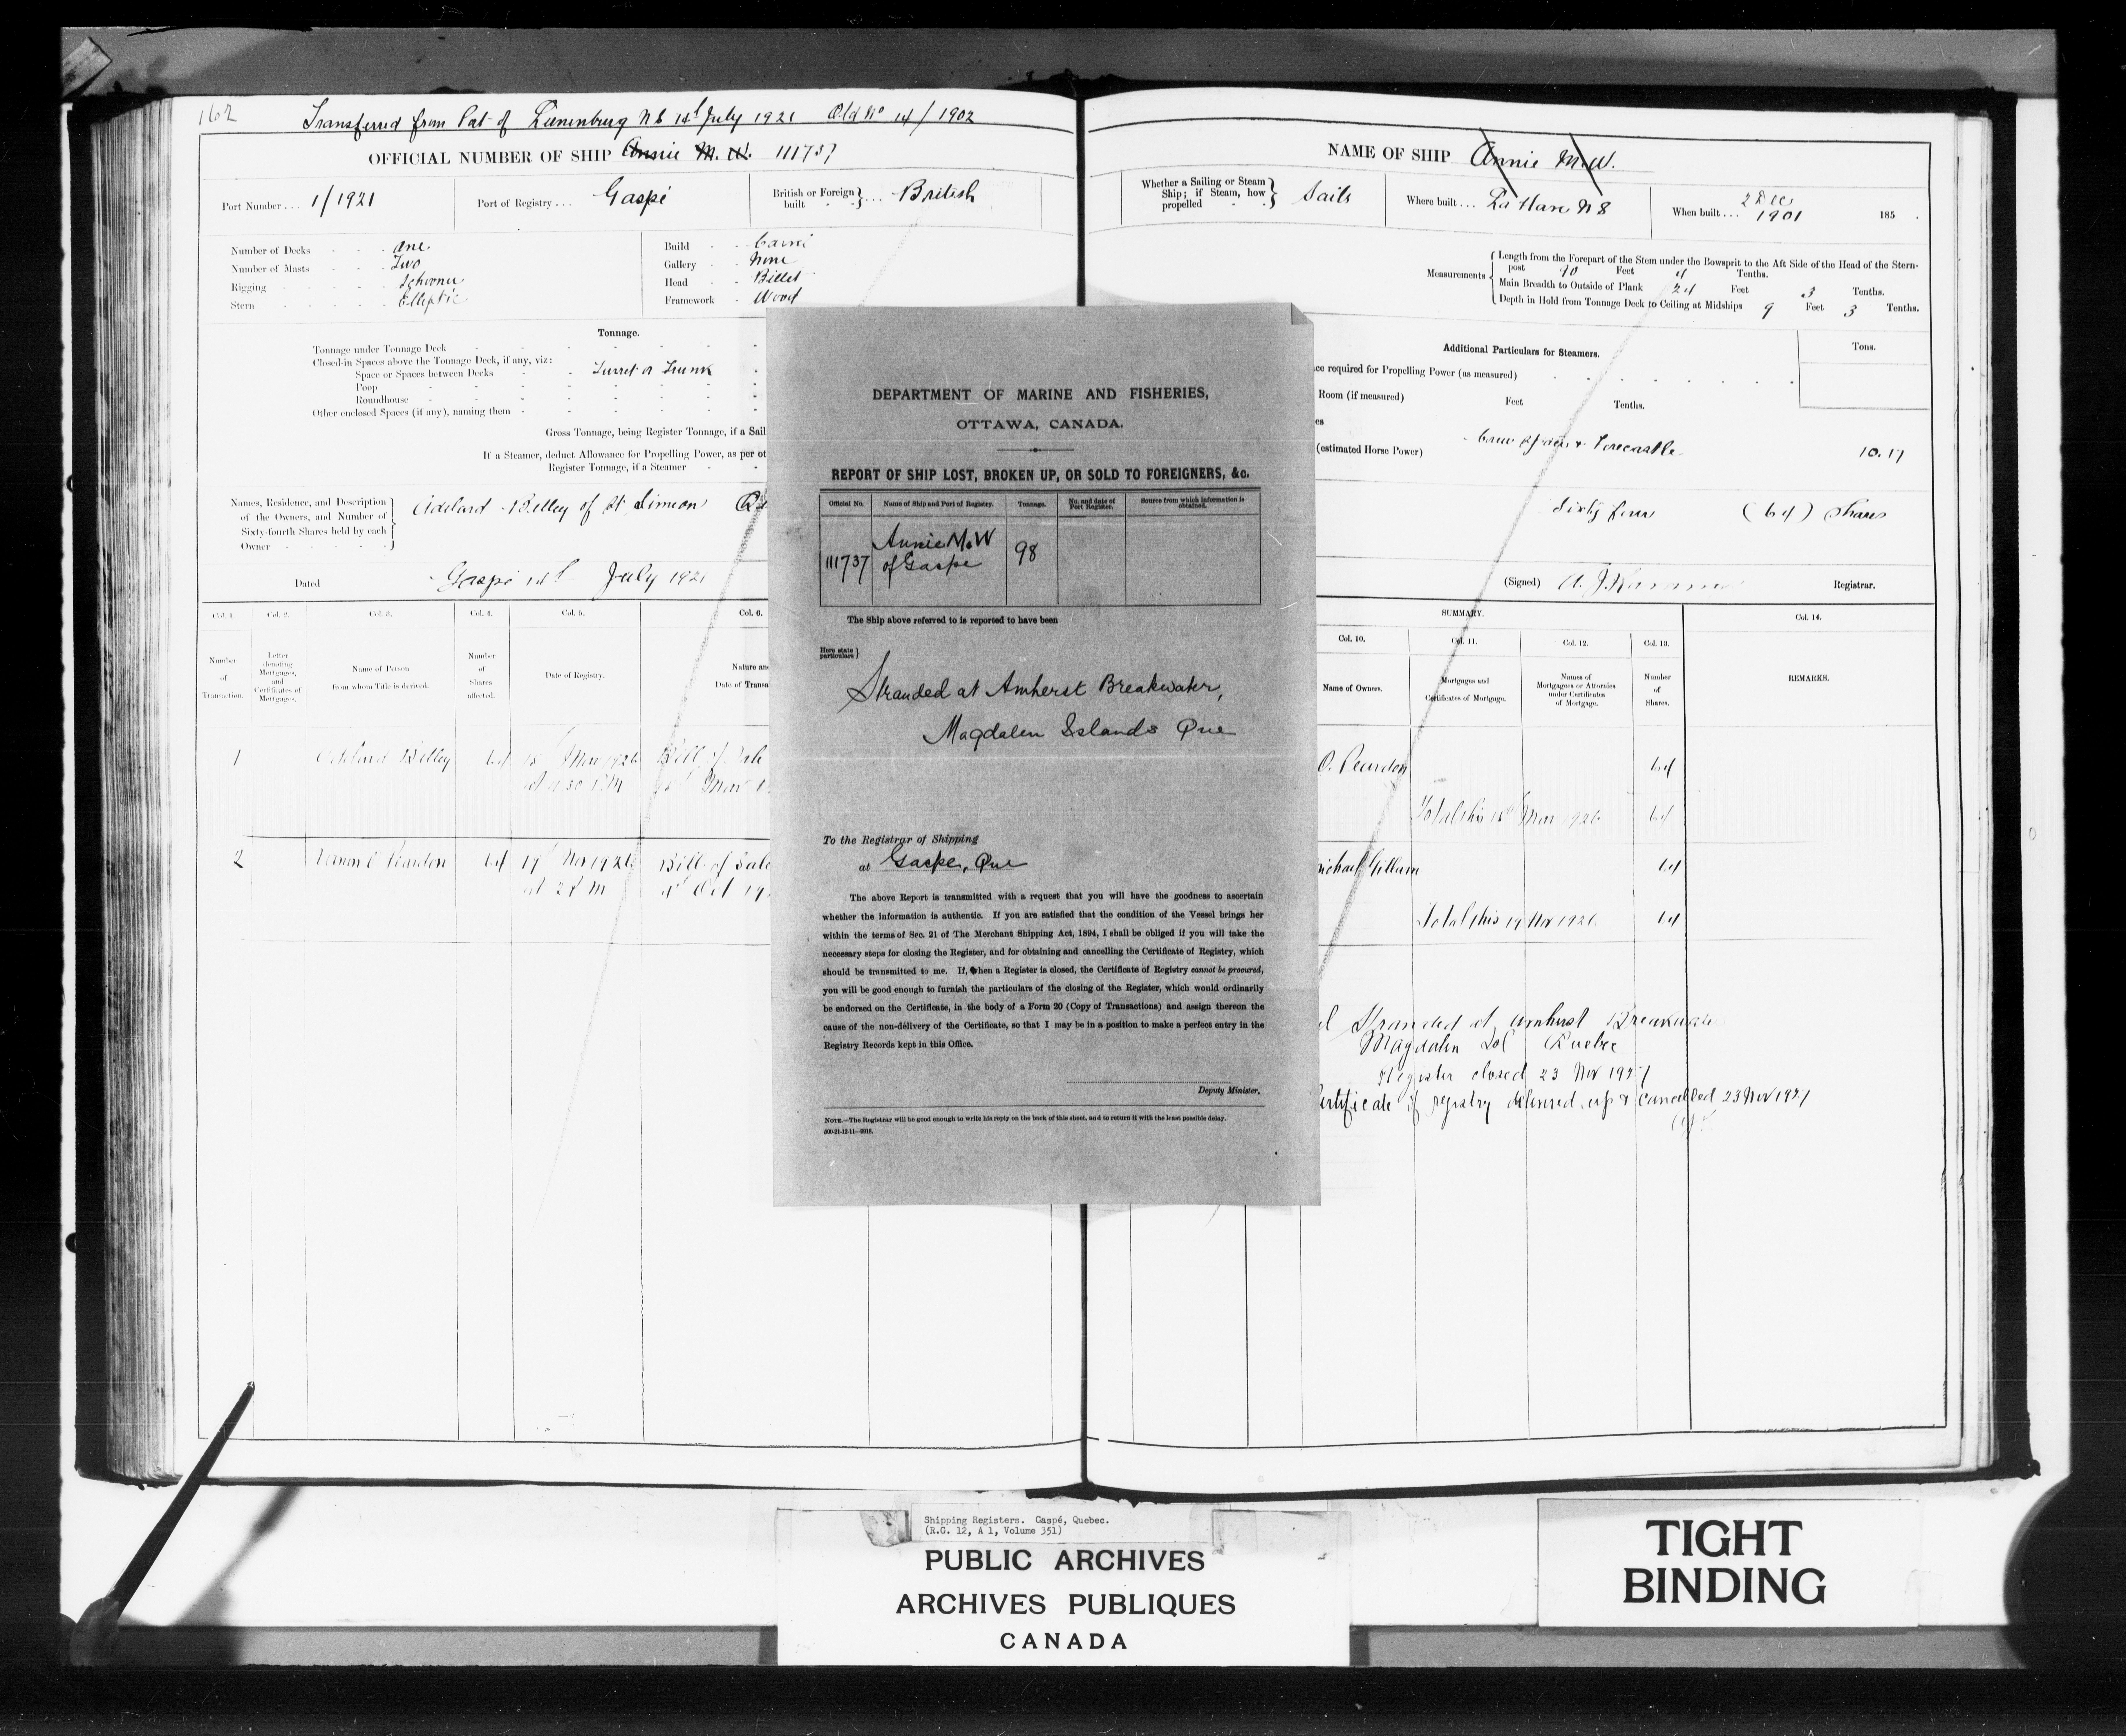 162
Transferred from Port of Lunenburg N S 14th July 1921 Old No 14/1902
OFFICIAL NUMBER OF SHIP Annie M. W. 111737
Port Number . . . 1/1921
Port of Registry . . . Gaspé
British or Foreign built } . . . British
Number of Decks One
Number of Masts Two
Rigging Schooner
Stern Elliptic
Build
Gallery None
Head Billet
Framework Wood
Tonnage.
Tonnage under Tonnage Deck
Closed-in Spaces above the Tonnage Deck, if any, viz:
Space or Spaces between Decks Turret or Trunk
Poop
Roundhouse
Other enclosed Spaces (if any), naming them
Gross Tonnage, being Register Tonnage, if a Sail
If a Steamer, deduct Allowance for Propelling Power, as per ot
Register Tonnage, if a Steamer
Names, Residence, and Description
of the Owners, and Number of
Sixty-fourth Shares held by each
Owner
of St Simeon
Dated Gaspé 14th July 1921
Col. 1. Col. 2. Col. 3. Col. 4. Col. 5. Col. 6.
Number of Transaction.
Letter denoting Mortgages, and Certificates of Mortgages.
Name of Person from whom Title is derived.
Number of Shares affected.
Date of Registry.
Nature and
Date of Transa
1 64 Mar 1926 Bill of Sale
at 4 30 P M Mar
2 Vernon O Peardon 64 19th Nov 1926 Bill of Sale
at 2 P M 4th Oct 19
NAME OF SHIP Annie M. W.
Whether a Sailing or Steam Ship; if Steam, how propelled } Sails
Where built . . . La Have N S
When built . . . 2 Dec 1901 185 .
Measurements
Length from the Forepart of the Stem under the Bowsprit to the Aft Side of the Head of the Stern-
post 90 Feet 4 Tenths.
Main Breadth to Outside of Plank 24 Feet 3 Tenths.
Depth in Hold from Tonnage Deck to Ceiling at Midships 9 Feet 3 Tenths.
Additional Particulars for Steamers.
Tons.
ce required for Propelling Power (as measured)
Room (if measured) Feet Tenths.
es
(estimated Horse Power) Forecastle 10.17
Sixty four (64) Shares
(Signed) Registrar.
SUMMARY.
Col. 10. Col. 11. Col. 12. Col. 13. Col. 14.
Name of Owners.
Mortgages and Certificates of Mortgage.
Names of Mortgagees or Attornies under Certificates of Mortgage.
Number of Shares.
REMARKS.
O. Peardon 64
Total this 18th Mar 1926 64
64
Total this 19 Nov 1926 64
Stranded at Amherst Breakwater
Magdalen Isl Quebec
Register closed 23 Nov 1927
Certificate of registry delivered up & cancelled 23 Nov 1927
DEPARTMENT OF MARINE AND FISHERIES,
OTTAWA, CANADA.
REPORT OF SHIP LOST, BROKEN UP, OR SOLD TO FOREIGNERS, &c.
Official No. Name of Ship and Port of Registry. Tonnage. No. and date of Port Register. Source from which information is obtained.
111737 Annie M. W of Gaspe 98
The Ship above referred to is reported to have been
Here state particulars }
Stranded at Amherst Breakwater,
Magdalen Islands Que
To the Registrar of Shipping
at Gaspe, Que
The above Report is transmitted with a request that you will have the goodness to ascertain
whether the information is authentic. If you are satisfied that the condition of the Vessel brings her
within the terms of Sec. 21 of The Merchant Shipping Act, 1894, I shall be obliged if you will take the
necessary steps for closing the Register, and for obtaining and cancelling the Certificate of Registry, which
should be transmitted to me. If, when a Register is closed, the Certificate of Registry cannot be procured,
you will be good enough to furnish the particulars of the closing of the Register, which would ordinarily
be endorsed on the Certificate, in the body of a Form 20 (Copy of Transactions) and assign thereon the
cause of the non-délivery of the Certificate, so that I may be in a position to make a perfect entry in the
Registry Records kept in this Office.
Deputy Minister.
NOTE.—The Registrar will be good enough to write his reply on the back of this sheet, and to return it with the least possible delay.
Shipping Registers. Gaspé, Quebec.
(R.G. 12, A 1, Volume 351)
PUBLIC ARCHIVES
ARCHIVES PUBLIQUES
CANADA
TIGHT
BINDING